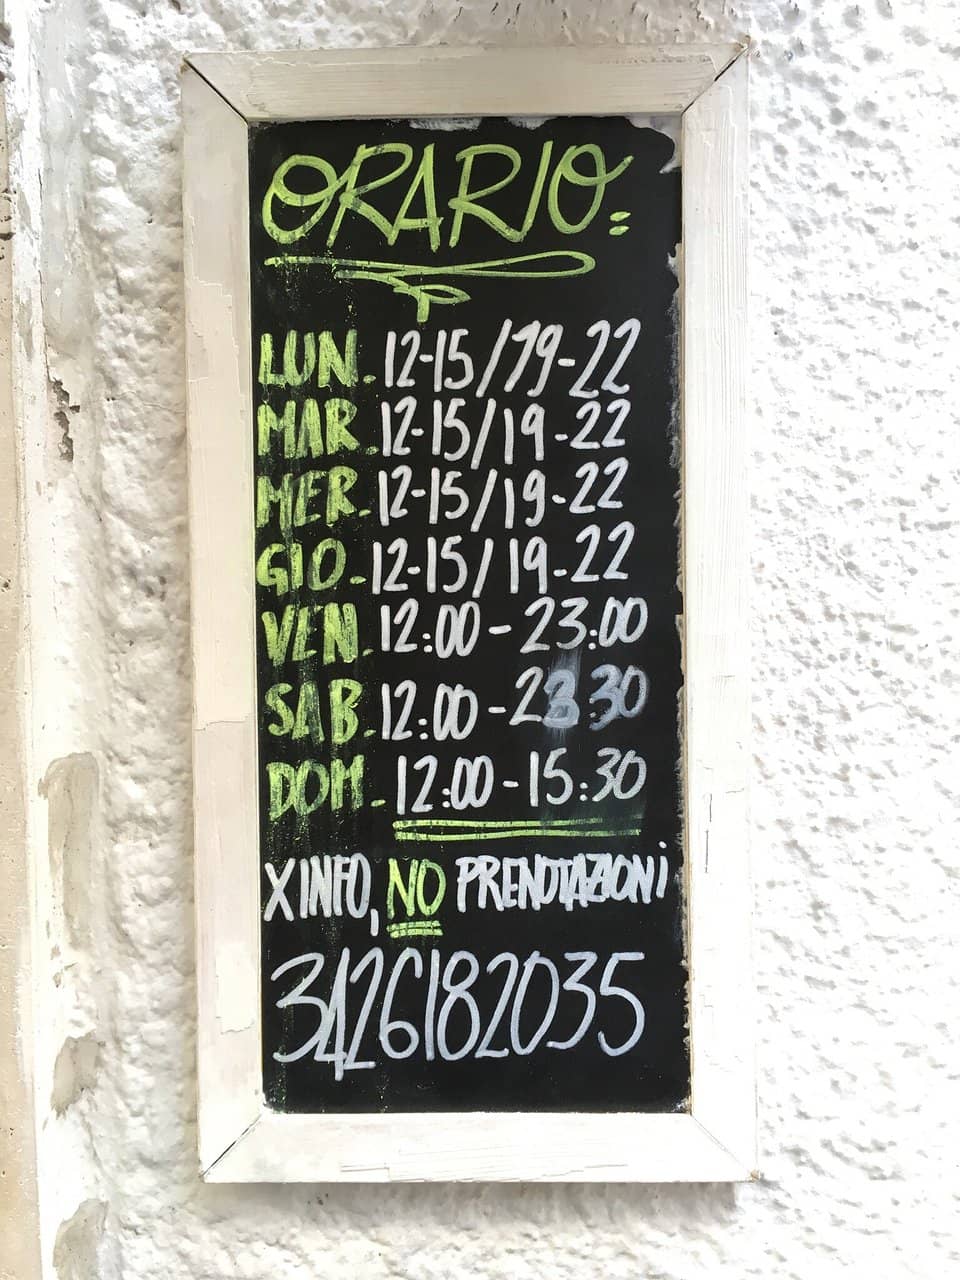 ORARIO:
LUN. 12-15/19-22
MAR. 12-15/19-22
MER. 12-15/19-22
GIO. 12-15/19-22
VEN. 12:00 - 23:00
SAB. 12:00 - 23:30
DOM. 12:00 - 15:30
X INFO, NO PRENOTAZIONI
3426182035